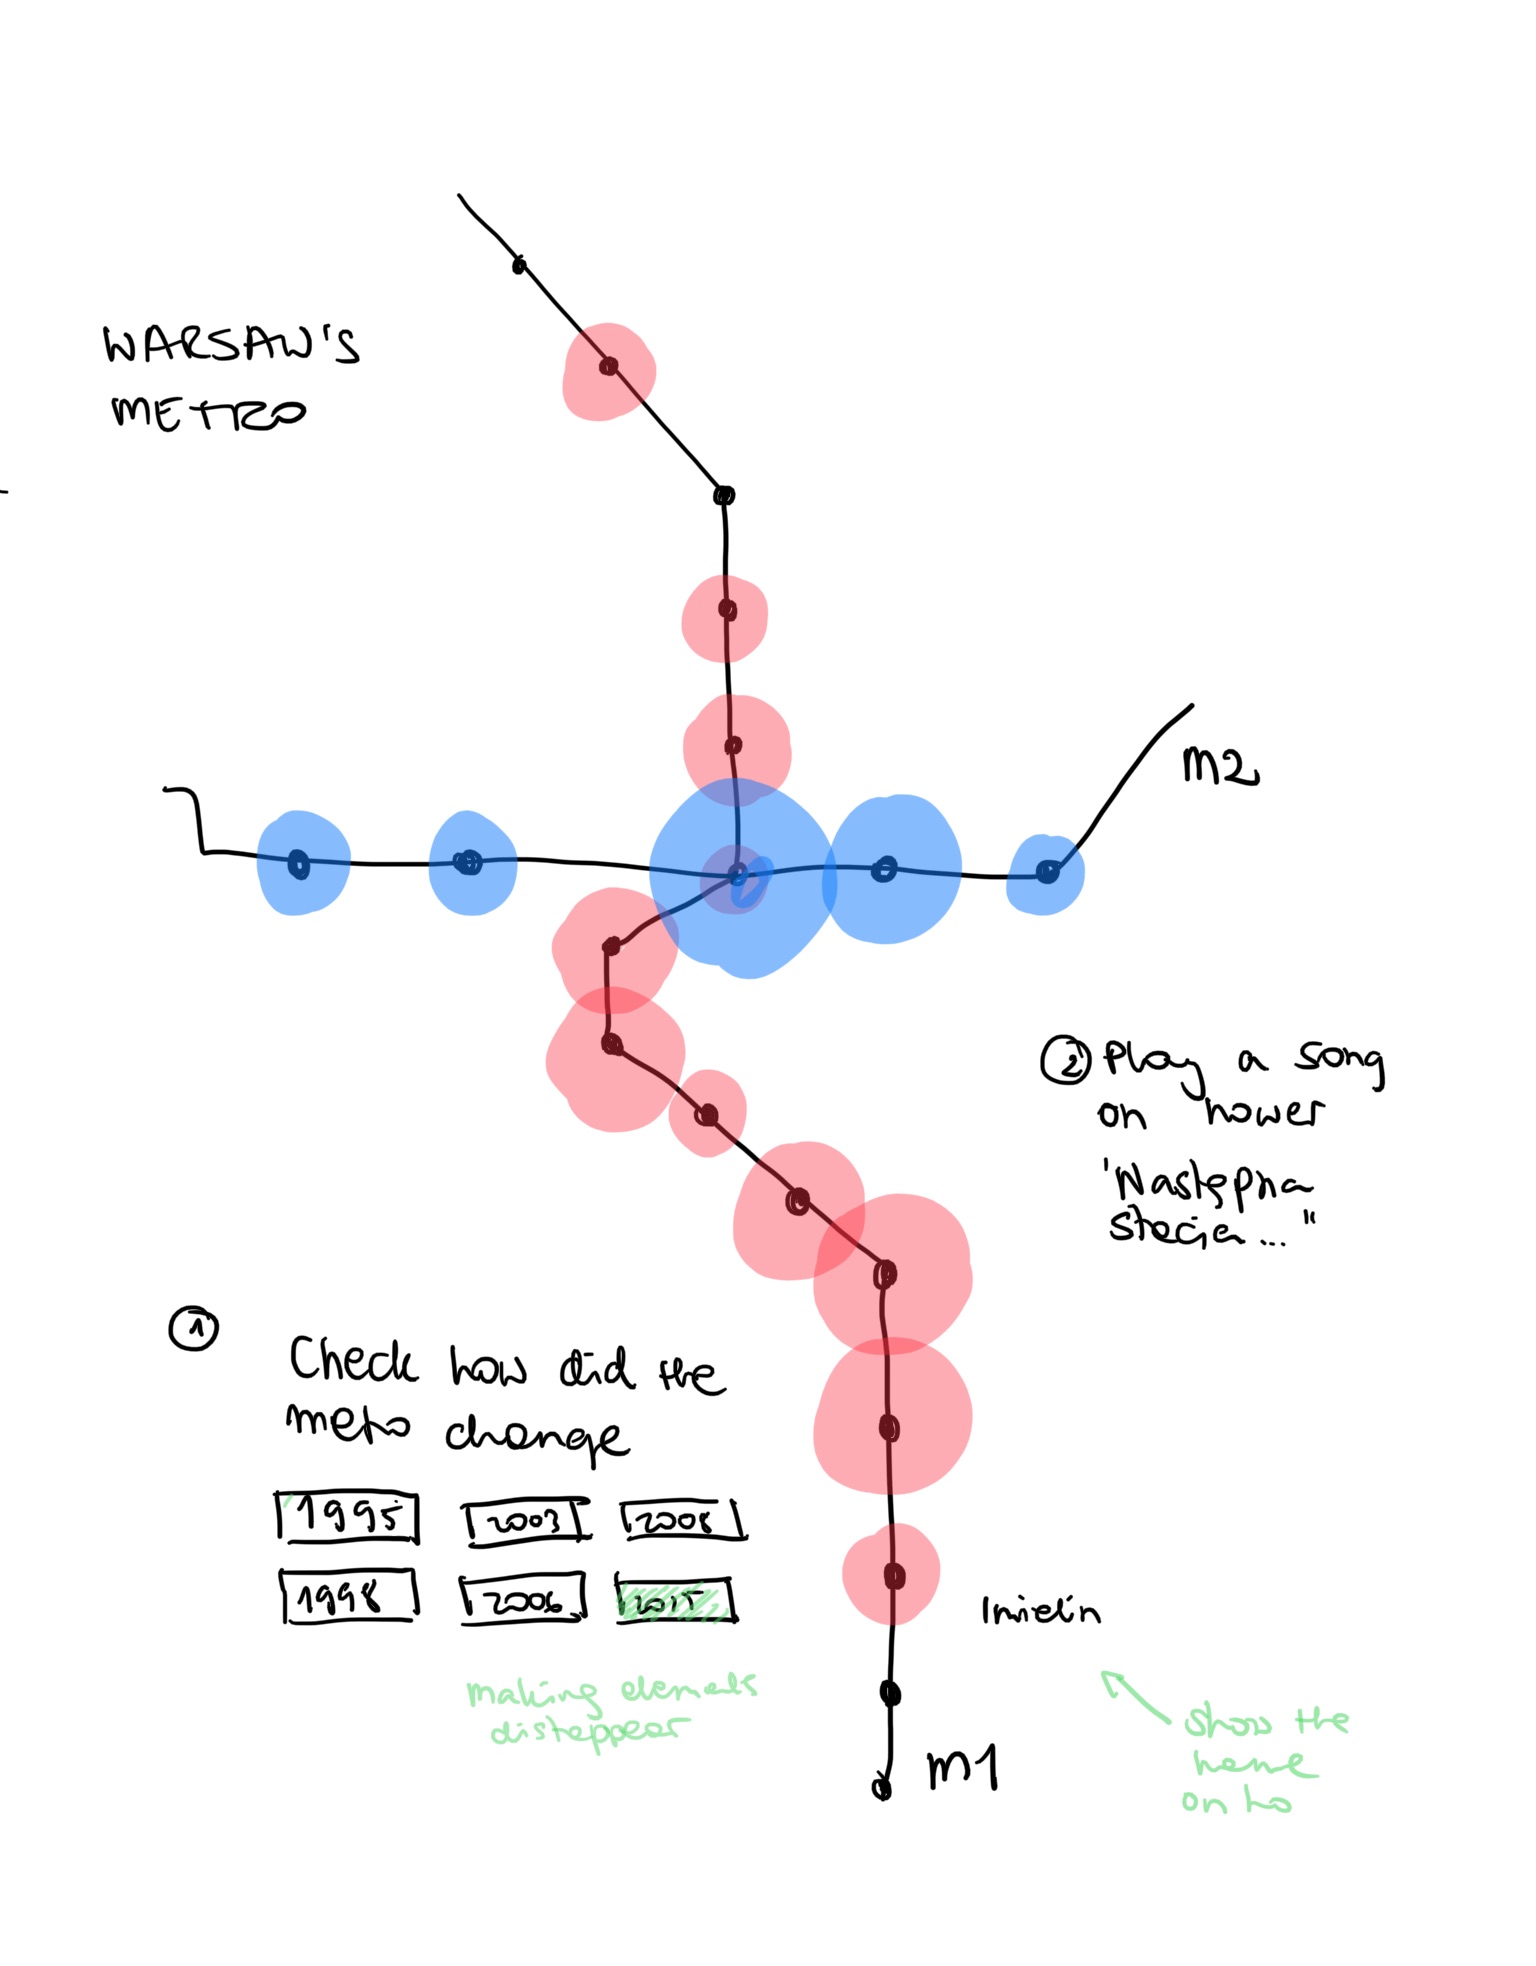 WARSAW'S
METRO
m2
② Play a song
on hower
"Następna
stacja..."
①
Check how did the
metro change
1995 2003 2008
1998 2006 2015
Imielin
making elements
disteppear
show the
name
on ho
m1